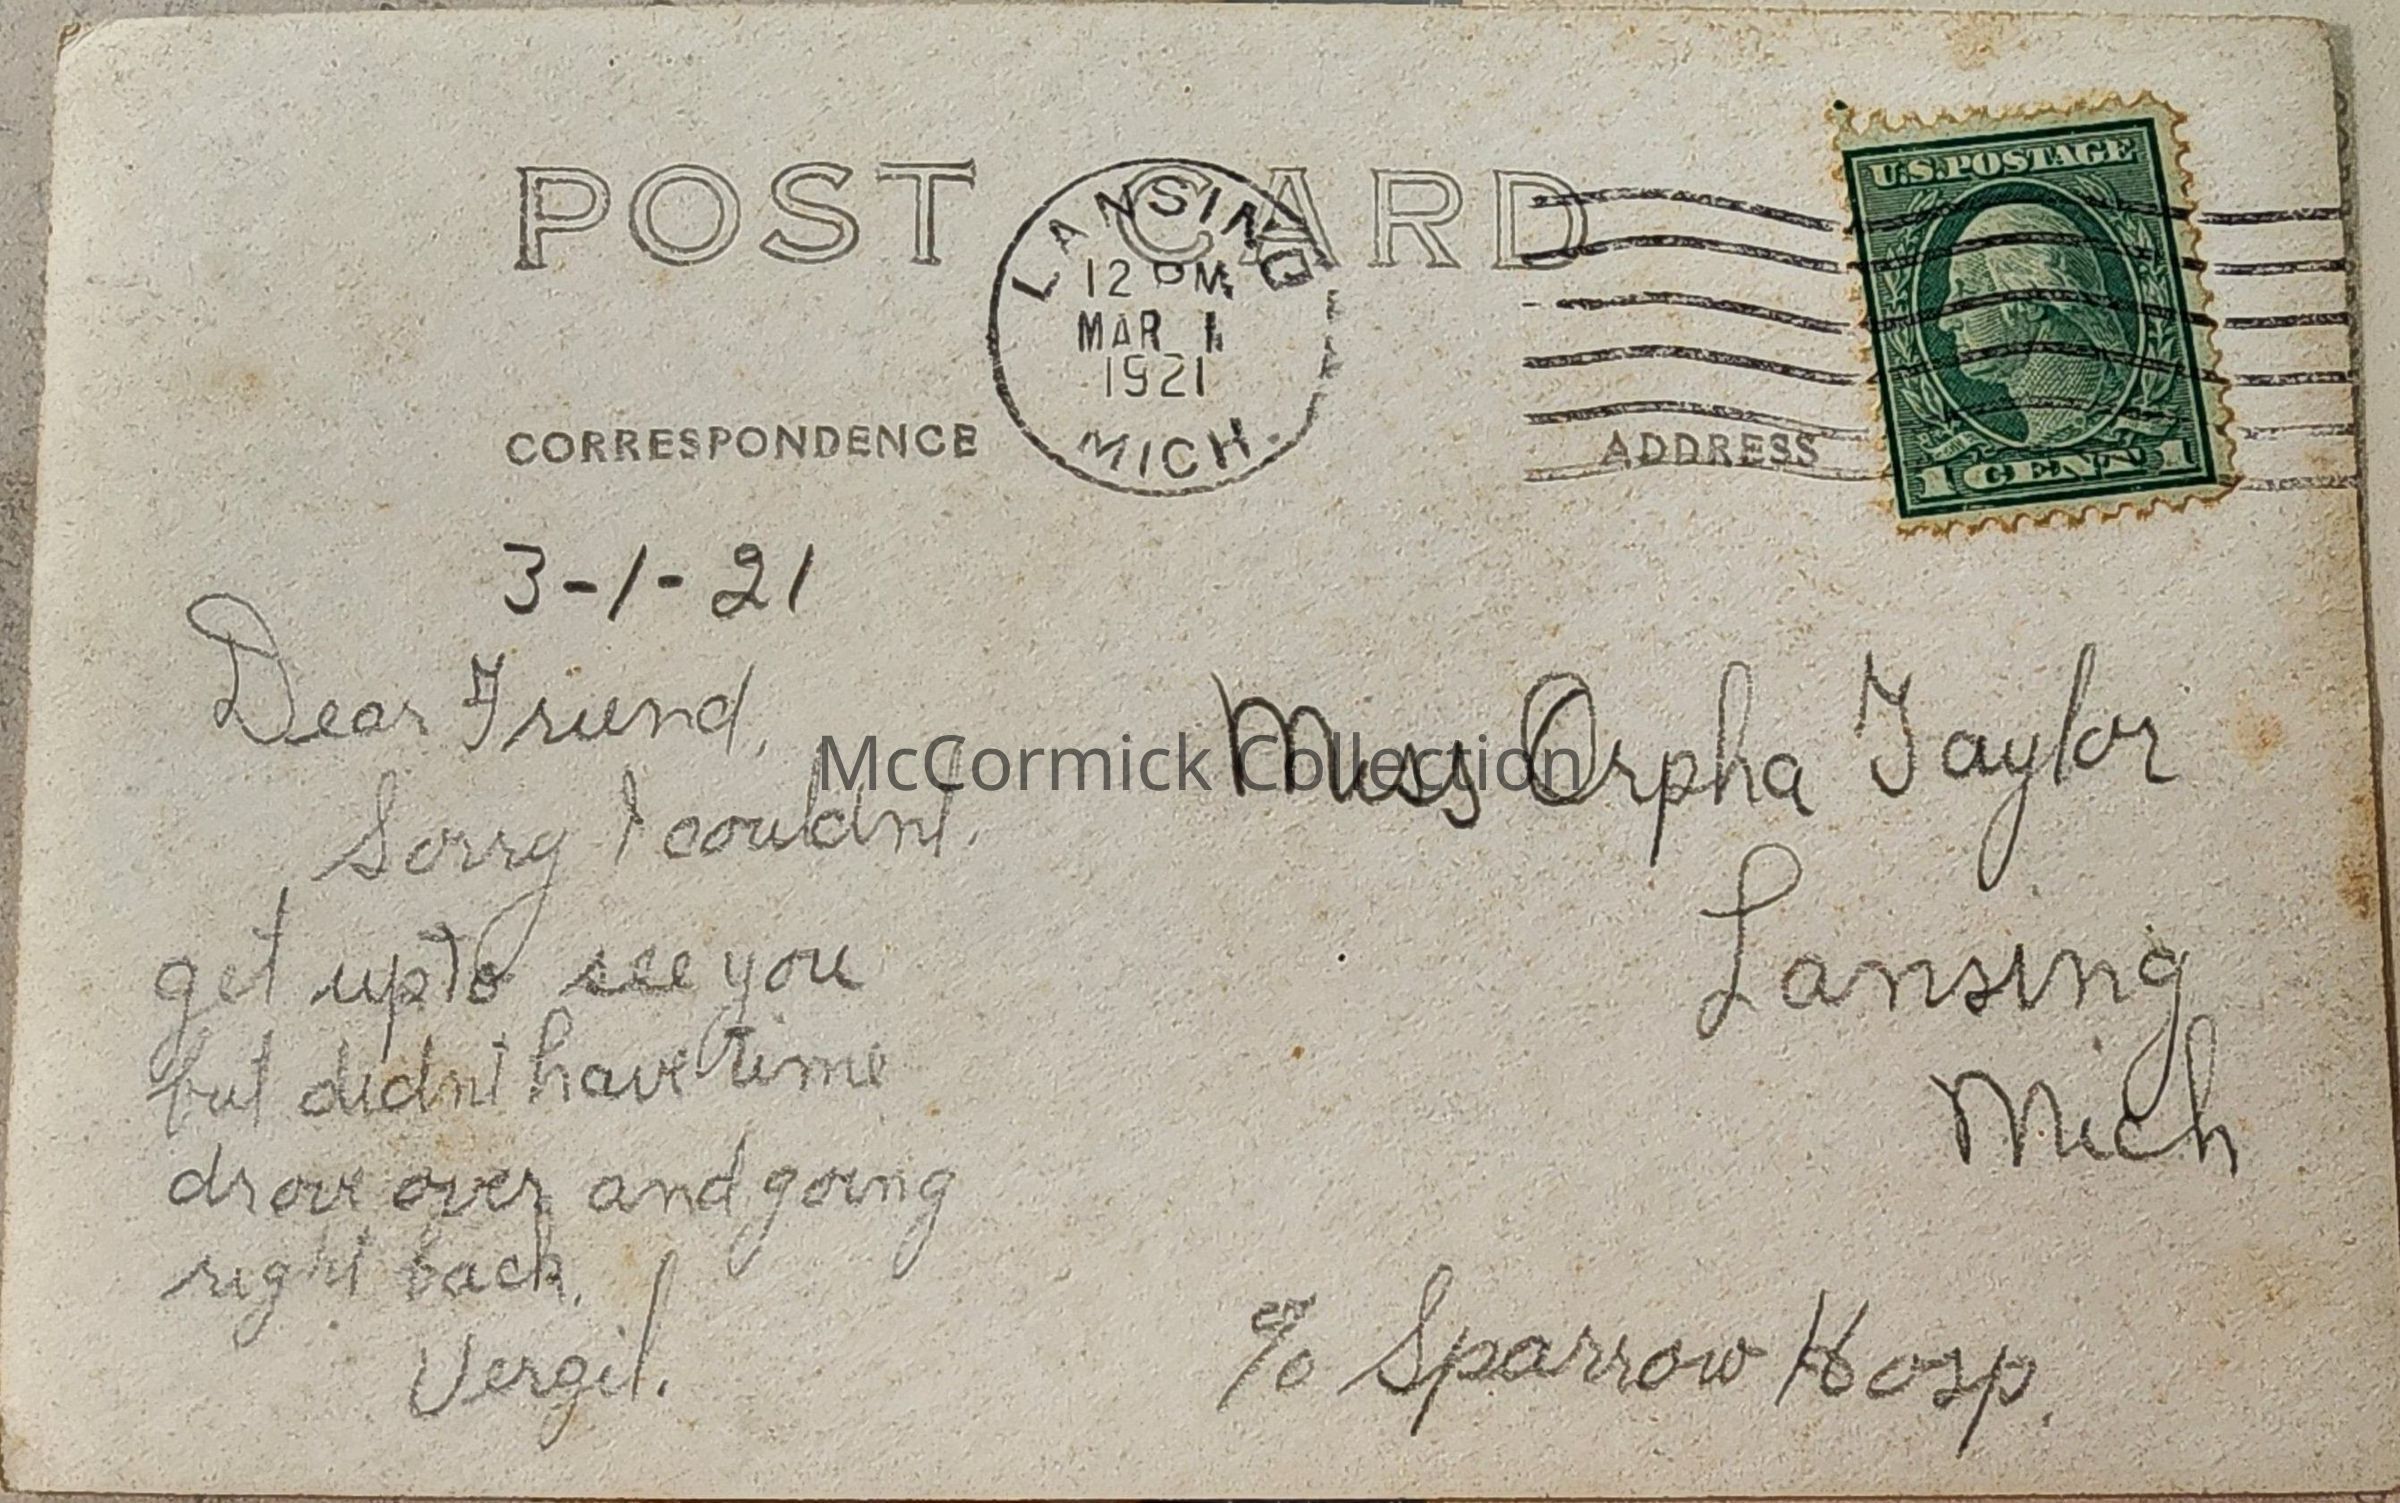 POST CARD
LANSING
12 PM
MAR 1
1921
MICH.
U.S. POSTAGE
1 CENT 1
CORRESPONDENCE
ADDRESS
3-1-21
Dear Friend,
Sorry I couldnt.
get up to see you
but didnt have time
drove over and going
right back.
Vergil.
Miss Orpha Taylor
Lansing
Mich
c/o Sparrow Hosp.
McCormick Collection